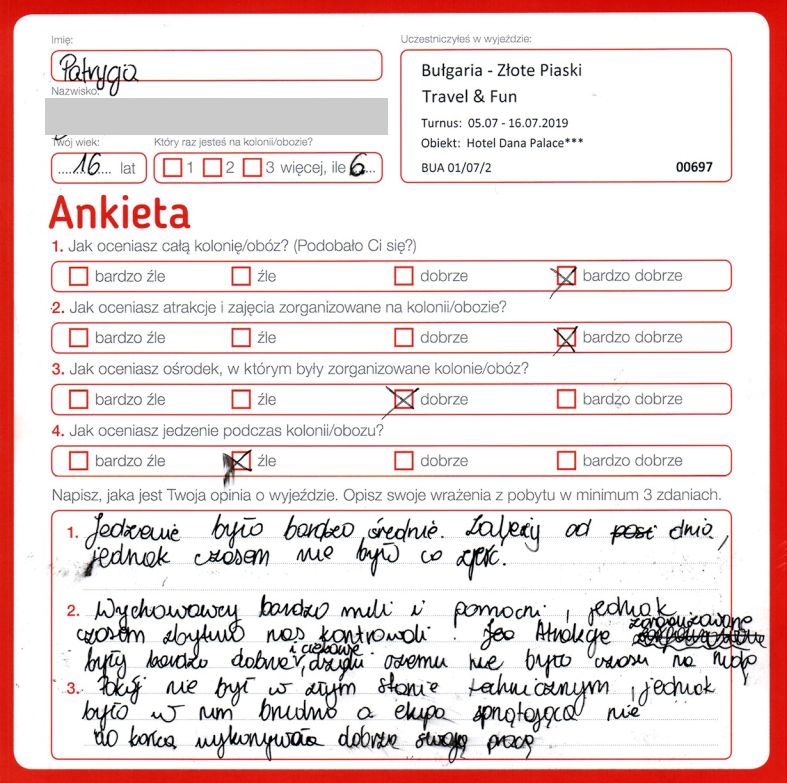 Imię:
Patrycja
Nazwisko:
Uczestniczyłeś w wyjeździe:
Bułgaria - Złote Piaski
Travel & Fun
Turnus: 05.07 - 16.07.2019
Obiekt: Hotel Dana Palace***
BUA 01/07/2 00697
Twój wiek:
16 lat
Który raz jesteś na kolonii/obozie?
1 2 3 więcej, ile 6
Ankieta
1. Jak oceniasz całą kolonię/obóz? (Podobało Ci się?)
bardzo źle źle dobrze bardzo dobrze
2. Jak oceniasz atrakcje i zajęcia zorganizowane na kolonii/obozie?
bardzo źle źle dobrze bardzo dobrze
3. Jak oceniasz ośrodek, w którym były zorganizowane kolonie/obóz?
bardzo źle źle dobrze bardzo dobrze
4. Jak oceniasz jedzenie podczas kolonii/obozu?
bardzo źle źle dobrze bardzo dobrze
Napisz, jaka jest Twoja opinia o wyjeździe. Opisz swoje wrażenia z pobytu w minimum 3 zdaniach.
1. Jedzenie było bardzo średnie. Zależy od dnia,
jednak czasem nie było co zjeść.
2. Wychowawcy bardzo mili i pomocni, jednak
czasem zbytnio nas kontrowali. Atrakcje zorganizowane
były bardzo dobrze i ciekawie, dzięki czemu nie było czasu na nudę
3. Pokój nie był w złym stanie technicznym, jednak
było w nim brudno a ekipa sprzątająca nie
do końca wykonywała dobrze swoją pracę